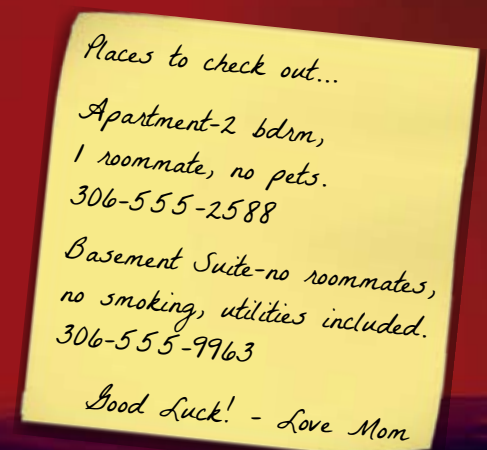 Places to check out...
Apartment-2 bdrm,
1 roommate, no pets.
306-555-2588
Basement Suite-no roommates,
no smoking, utilities included.
306-555-9963
Good Luck! - Love Mom